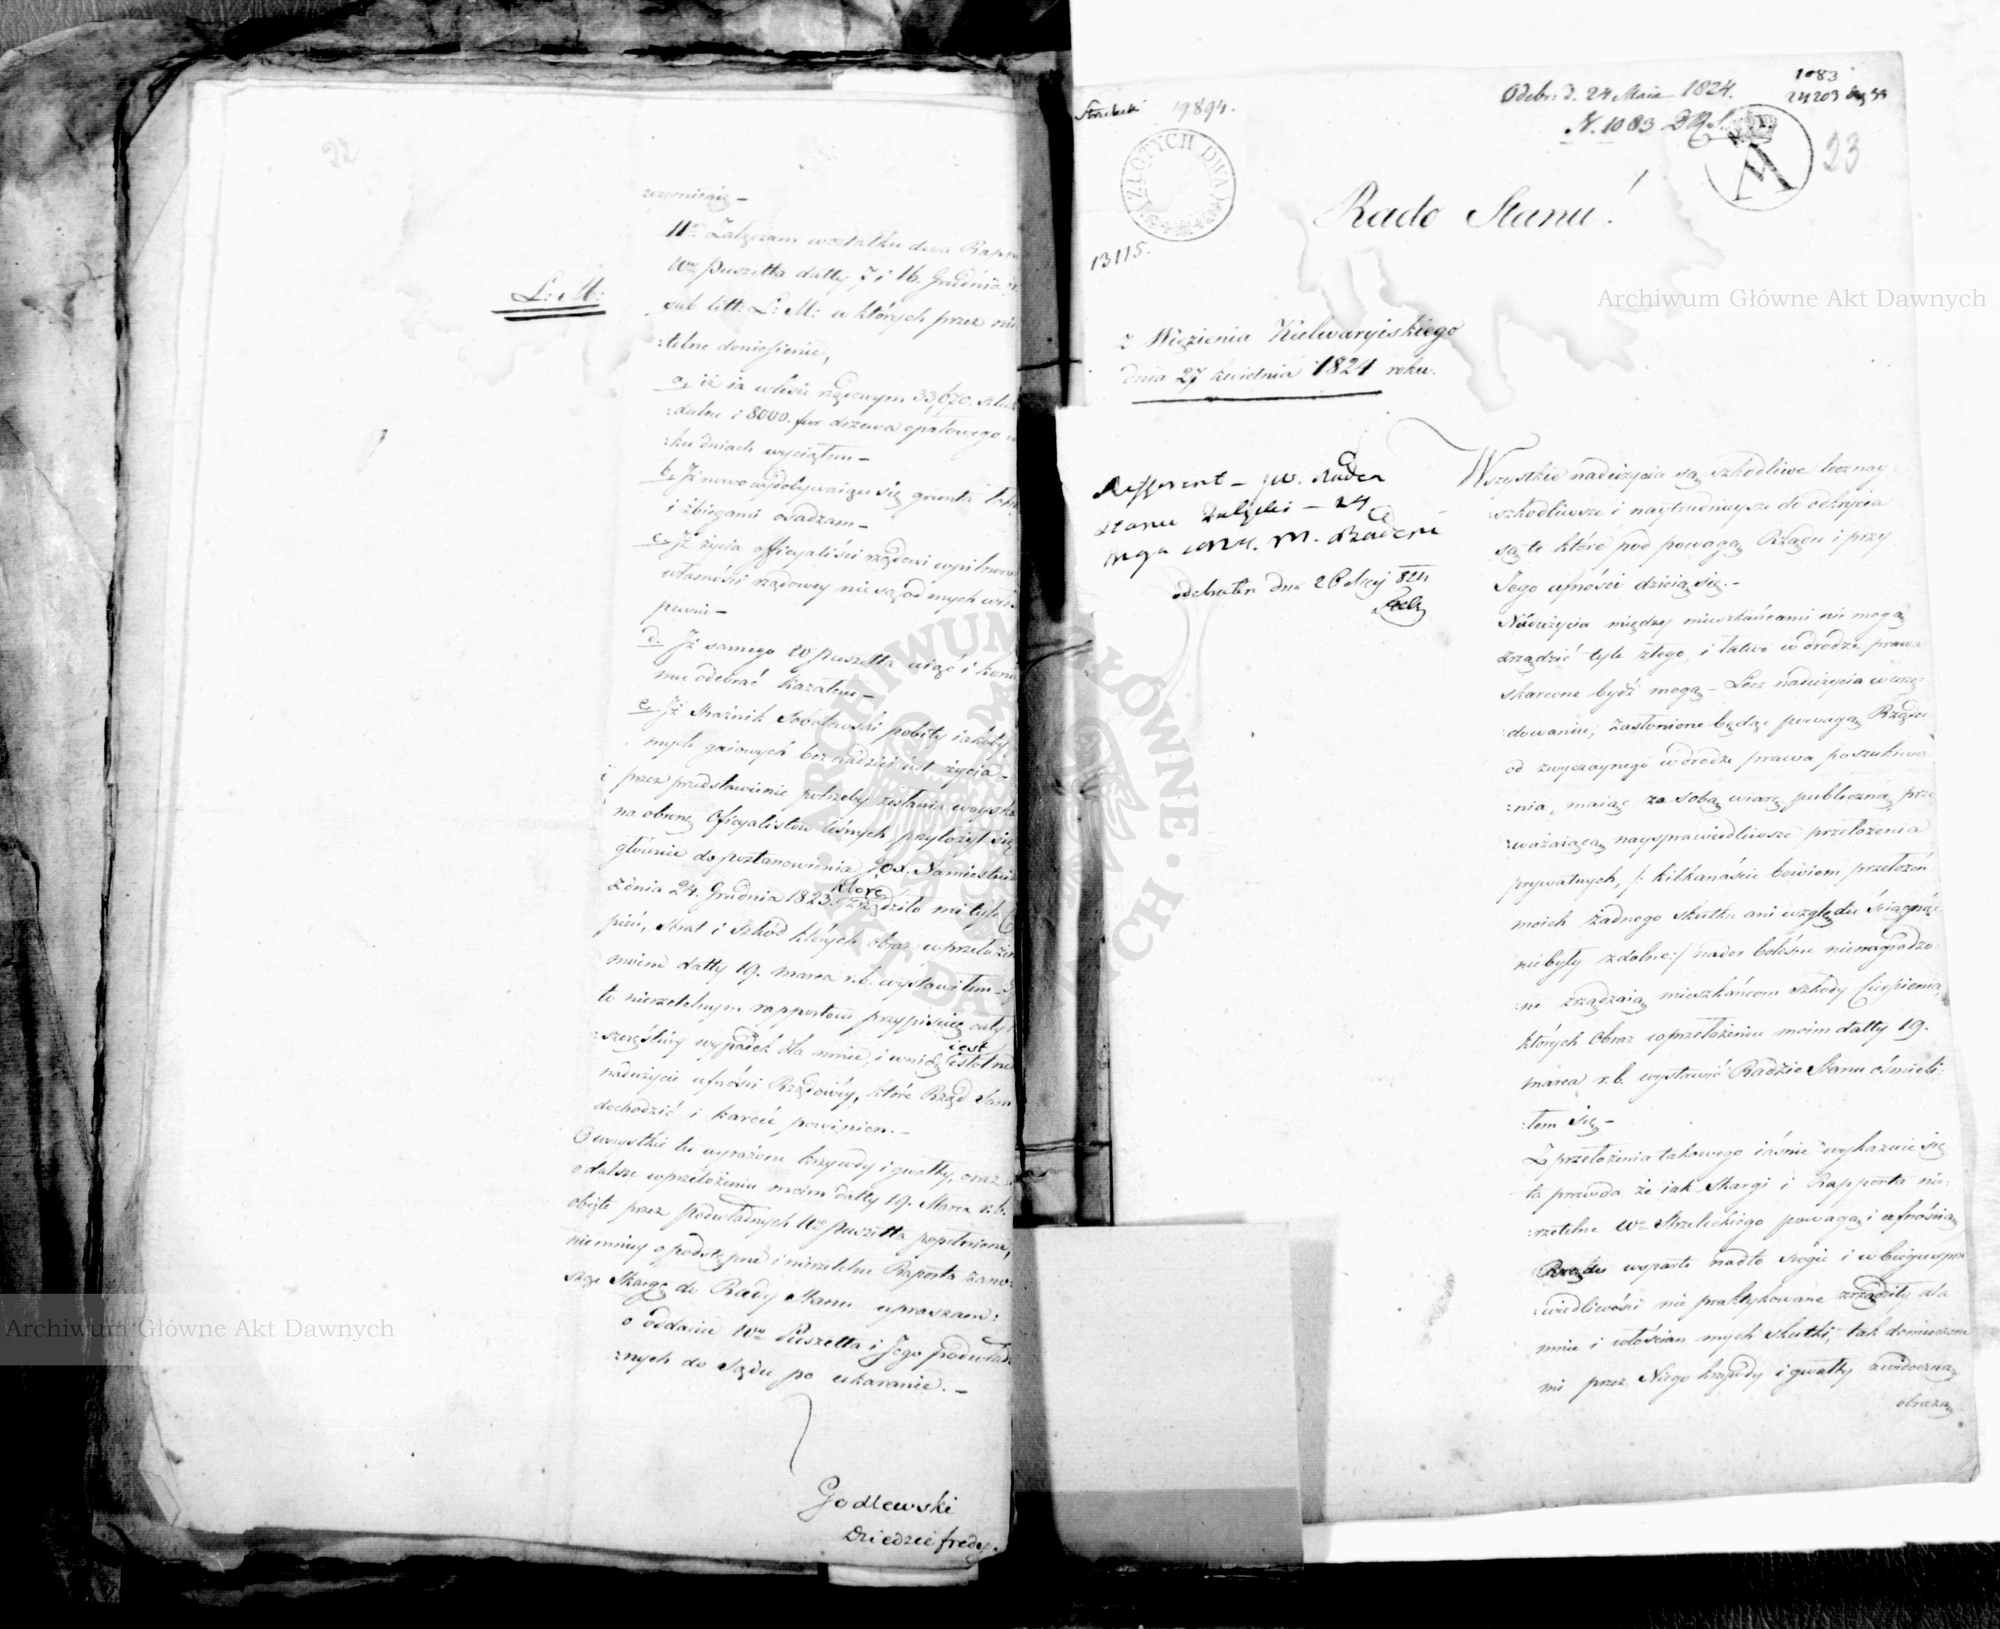 22
wspomienię –
L: M:
11o Załączam w ostatku dwa Rappo
Wo Puszetta datty 7 i 16. Grudnia
sub litt: L: M: w których przez nie
:telne doniesienie,
a, iż w lesie rządowym 33,670. sztuk
:dulne i 8000. fur drzewa opałowego w
:ku dniach wyciąłem –
b, Iż nowo wydobywaiące się grunta
i zbiegami osadzam –
c, Iż życia officyaliści rządowi w pilnowa
własności rządowey nie są od mych
pewni –
d. Iż samego W Puszetta wiąć i konie
mu odebrać kazałem –
e, Iż Strażnik Sobolewski pobity
mych gaiowych bez nadziei iest życia –
i przez przedstawienie potrzeby zesłania woyska
na obronę Oficyalistów leśnych przyłożył się
głównie do postanowienia JOX. Namiestnik
z dnia 24. Grudnia 1823. które zrządziło mi tyle
pień, strat i szkód których obraz w przełożen
moiem datty 19. marca r.b. wystawiłem –
to nierzetelnym rapportem przypisuię cały
:szczęśliwy wypadek dla mnie, i w nich iest istotne
nadużycie ufności Rządowéy, które Rząd sam
dochodzić i karcić powinien. –
O wszystkie tu wyrażone krzywdy i gwałty, oraz
o dalsze w przełożeniu moim datty 19. Marca r.b.
obięte przez podwładnych Wo Puszetta popełnione,
niemniey o podstępne i nierzetelne Raporta zano:
sząc Skargę do Rady Stanu upraszam:
o oddanie Wo Puszetta i Jego podwład
:nych do Sądu po ukaranie. –
Godlewski
Dziedzic fredy.
19894.
Odebr: d. 24 Maia 1824.
N. 1083 DRS.
1083
24203
23
ZŁOTYCH DWA
Rado Stanu!
13115.
z Więzienia Kielwaryiskiego
dnia 27 kwietnia 1824 roku.
Refferent – JW. Radca
Stanu – 24
Odebrałem dnia 26 Maj 824
Wszystkie nadużycia są szkodliwe lecz nay:
:szkodliwsze i naytrudnieysze do odkrycia
są te które pod powagą Rządu i przy
Jego ufności dzieią się. –
Nadużycia między mieszkańcami nie mogą
zrządzić tyle złego, i łatwo w drodze prawa
skarcone bydź mogą – Lecz nadużycia w urzę:
:dowaniu, zasłonione będąc powagą Rządu
od zwyczaynego w drodze prawa poszukiwa
:nia, maiąc za sobą wiarę publiczną, prze
:ważaiącą naysprawiedliwsze przełożenia
prywatnych, /: kilkanaście bowiem przełożeń
moich żadnego skutku ani względu ściągnąć
niebyły zdolne:/ nader boleśne nienagrodzo:
:ne zrządzaią mieszkańcom szkody Cierpienia,
których Obraz w przełożeniu moim datty 19.
marca r.b. wystawić Radzie Stanu ośmieli:
:łem się –
Z przełożenia takowego iaśnie wykazuie się
ta prawda że iak Skargi i Rapporta nie:
:rzetelne Wo Strzeleckiego powagą i ufnością
Rządu wsparte nadto srogie i w biegu spra
:wiedliwości nie praktykowane zrządziły dla
mnie i włościan mych skutki, tak domierzone
mi przez Niego krzywdy i gwałty zwidoczną
obrazą
ARCHIWUM GŁÓWNE AKT DAWNYCH
Archiwum Główne Akt Dawnych
Archiwum Główne Akt Dawnych